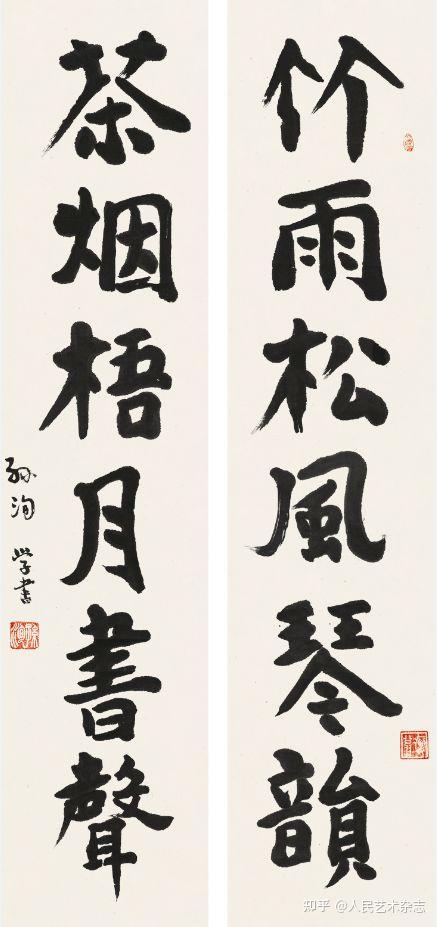 竹雨松風琴韻
茶烟梧月書聲
孙洵 学書
知乎 @人民艺术杂志